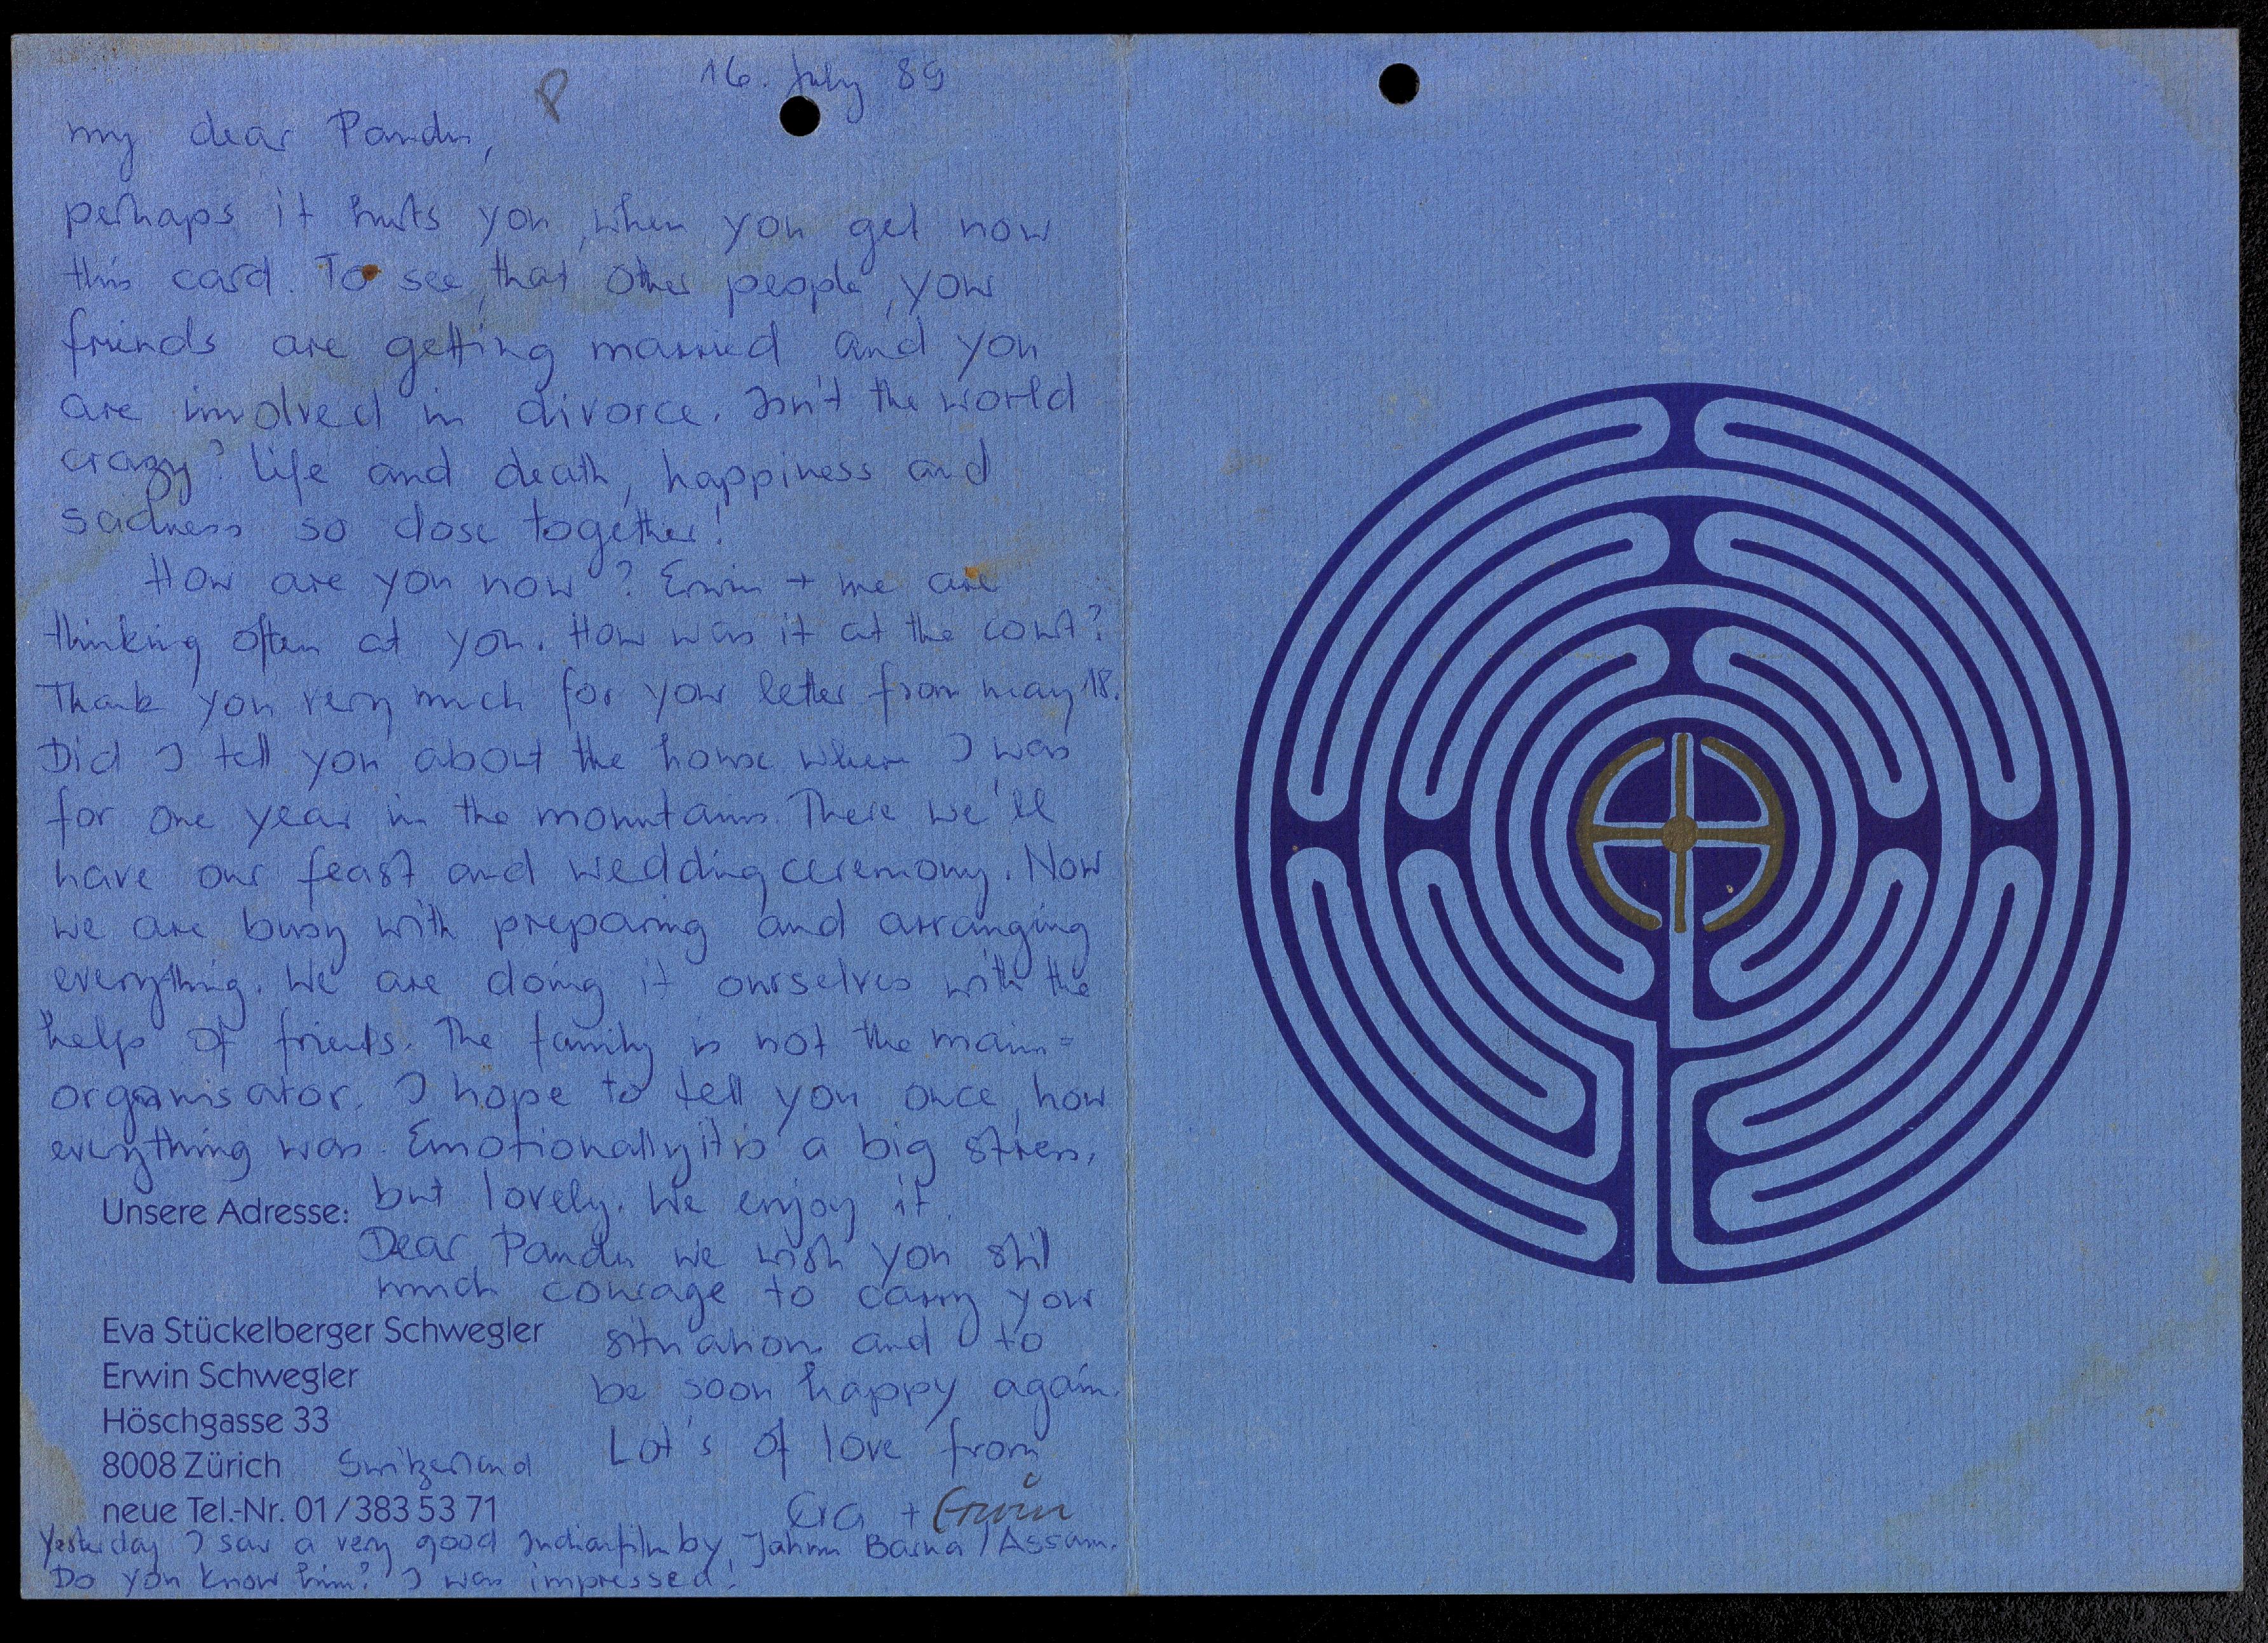 16. July 89
P
my dear Pandu,
perhaps it hurts you, when you get now
this card. To see, that other people, your
friends are getting married and you
are involved in divorce. Isn't the world
crazy? Life and death, happiness and
sadness so close together!
How are you now? Erwin + me are
thinking often at you. How was it at the court?
Thank you very much for your letter from may 18.
Did I tell you about the house where I was
for one year in the mountains. There we'll
have our feast and wedding ceremony. Now
we are busy with preparing and arranging
everything. We are doing it ourselves with the
help of friends. The family is not the main=
organisator. I hope to tell you once, how
everything was. Emotionally it is a big stress,
but lovely. We enjoy it.
Dear Pandu we wish you stil
much courage to carry your
situation and to
be soon happy again.
Lot's of love from
Eva + Erwin
Unsere Adresse:
Eva Stückelberger Schwegler
Erwin Schwegler
Höschgasse 33
8008 Zürich Switzerland
neue Tel.-Nr. 01/383 53 71
Yesterday I saw a very good Indianfilm by, Jahnu Barua / Assam.
Do you know him? I was impressed!